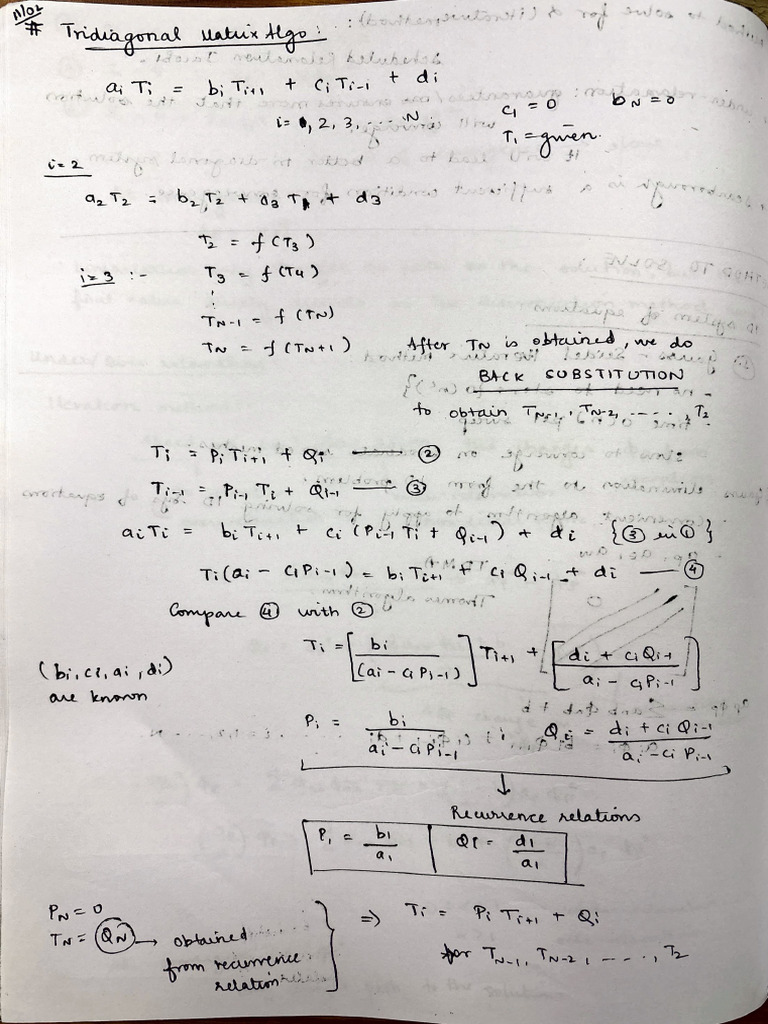 11/02
# Tridiagonal Matrix Algo :
ai Ti = bi Ti+1 + ci Ti-1 + di
i = 1, 2, 3, ... N
c1 = 0 bN = 0
T1 = given.
i=2
a2 T2 = b2 T2 + d3 T1 + d3
T2 = f(T3)
i=3 :- T3 = f(T4)
⋮
TN-1 = f(TN)
TN = f(TN+1)
After TN is obtained, we do
BACK SUBSTITUTION
to obtain TN-1, TN-2, ....., T2
Ti = Pi Ti+1 + Qi —— ②
Ti-1 = Pi-1 Ti + Qi-1 —— ③
ai Ti = bi Ti+1 + ci (Pi-1 Ti + Qi-1) + di {③ in ①}
Ti (ai - ci Pi-1) = bi Ti+1 + ci Qi-1 + di —— ④
Compare ④ with ②
Ti = [bi / (ai - ci Pi-1)] Ti+1 + [di + ci Qi-1 / ai - ci Pi-1]
(bi, ci, ai, di)
are known
Pi = bi / ai - ci Pi-1 ; Qi = di + ci Qi-1 / ai - ci Pi-1
↓
Recurrence relations
P1 = b1 / a1 | Q1 = d1 / a1
PN = 0
TN = QN → obtained
from recurrence
relation
⇒ Ti = Pi Ti+1 + Qi
for TN-1, TN-2, ...., T2